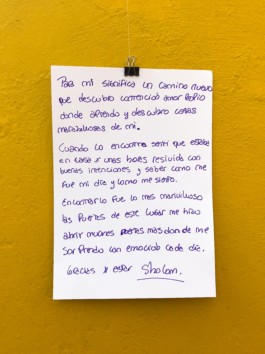 Para mi significa un camino nuevo
que descubro conmigo amor propio
donde aprendo y descubro cosas
maravillosas de mi.
Cuando lo encontre senti que estaba
en casa x unas boles resivida con
buenas intenciones y saber como me
fue mi dia y como me siento.
Encontrarlo fue lo mas maravilloso
las puertas de este lugar me hizo
abrir muchas puertas mas donde me
sorprendo con emoción cada dia.
Gracias x estar Shalom.